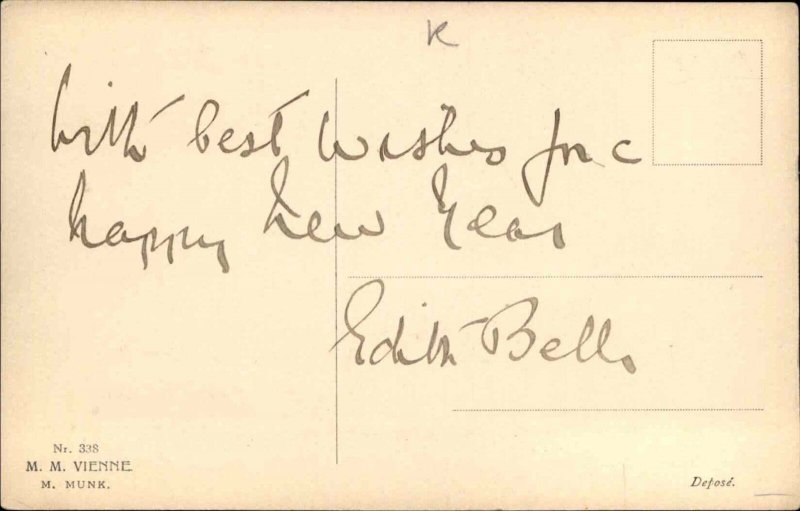 K
With best wishes for a
happy New Year
Edith Bell
Nr. 338
M. M. VIENNE
M. MUNK.
Deposé.